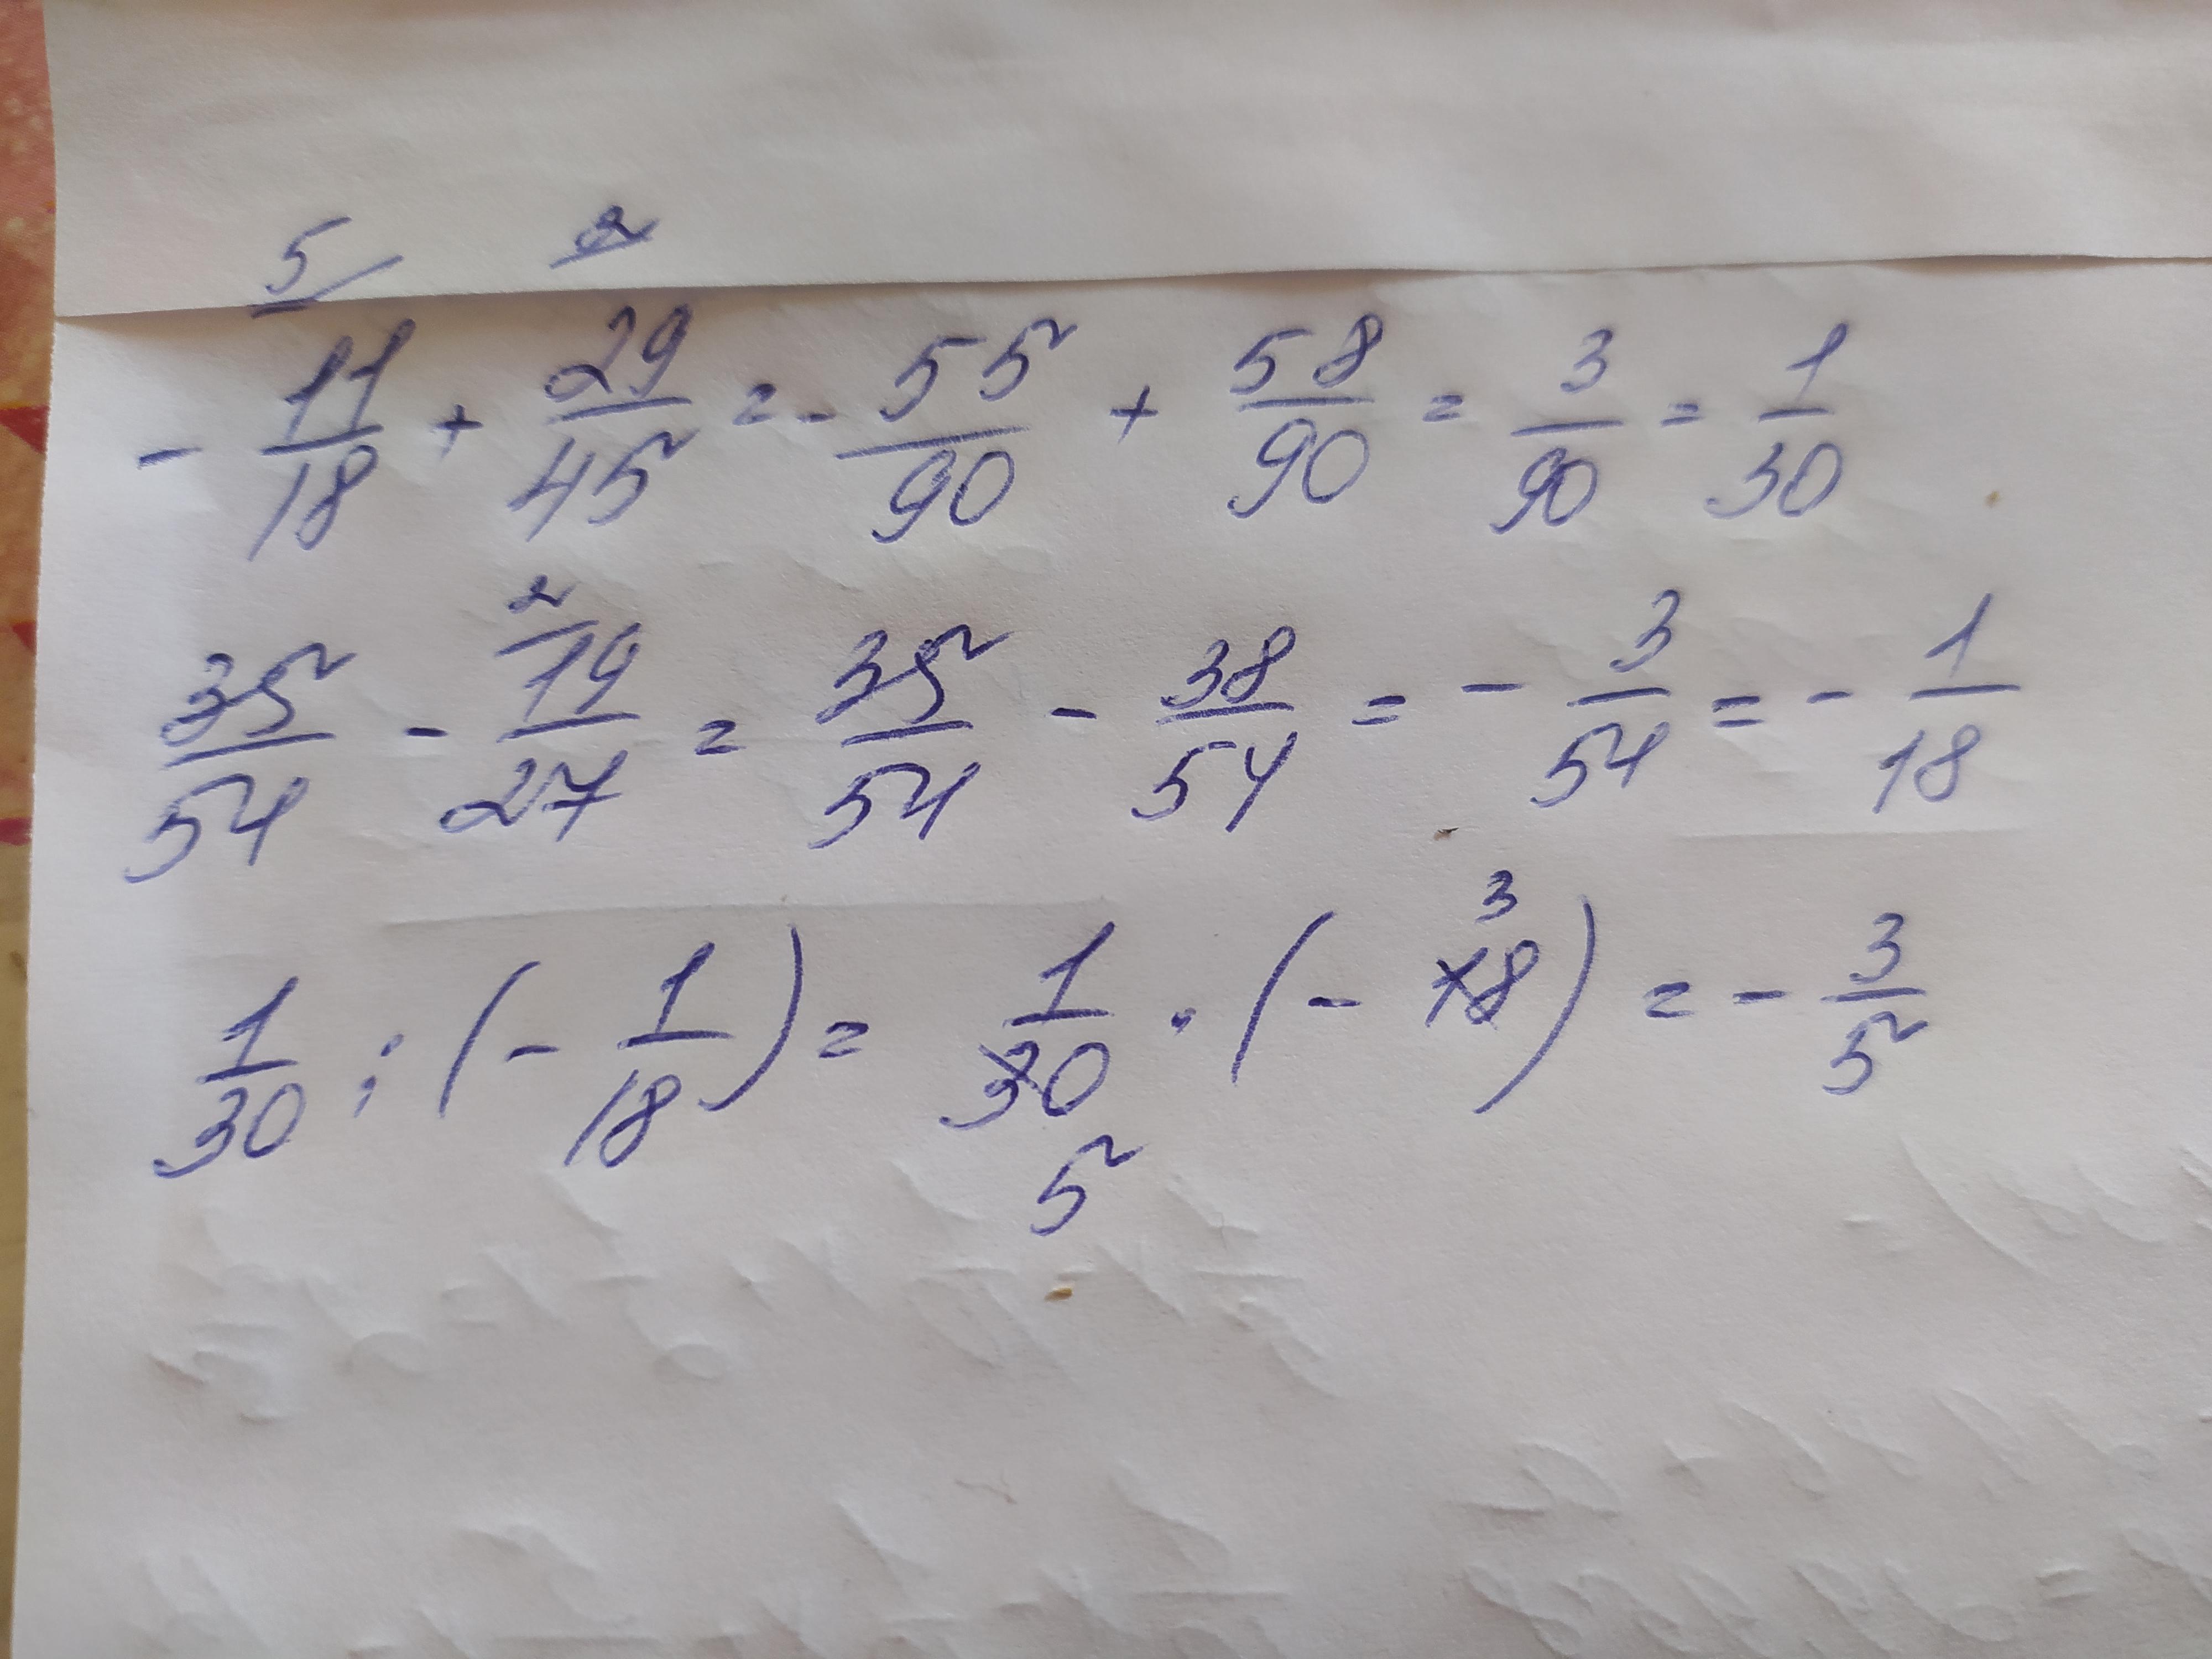 5 2
- 11/18 + 29/45 = - 55/90 + 58/90 = 3/90 = 1/30
2
35/54 - 19/27 = 35/54 - 38/54 = - 3/54 = - 1/18
3
1/30 : (- 1/18) = 1/30 · (- 18) = - 3/5
5